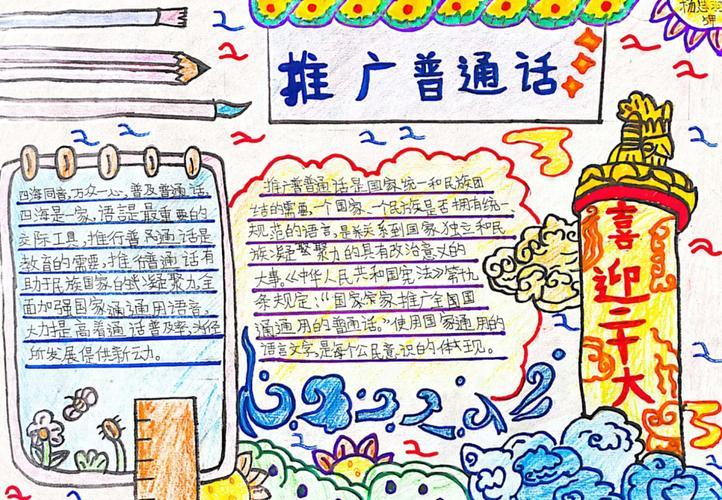 推广普通话
四海同音,万众一心,普及普通话,
四海是一家,语言是最重要的
交际工具,推行普通话是
教育的需要,推行普通话有
助于民族国家的凝聚力,全
面加强国家通用语言,
大力提高普通话普及率,为经
所发展提供新动力。
推广普通话是国家统一和民族团
结的需要,一个国家、一个民族是否拥有统一
规范的语言,是关系到国家独立和民
族凝聚力的具有政治意义的
大事。《中华人民共和国宪法》第九
条规定:“国家推广全国
通用的普通话。”使用国家通用的
语言文字,是每个公民意识的体现。
喜迎二十大